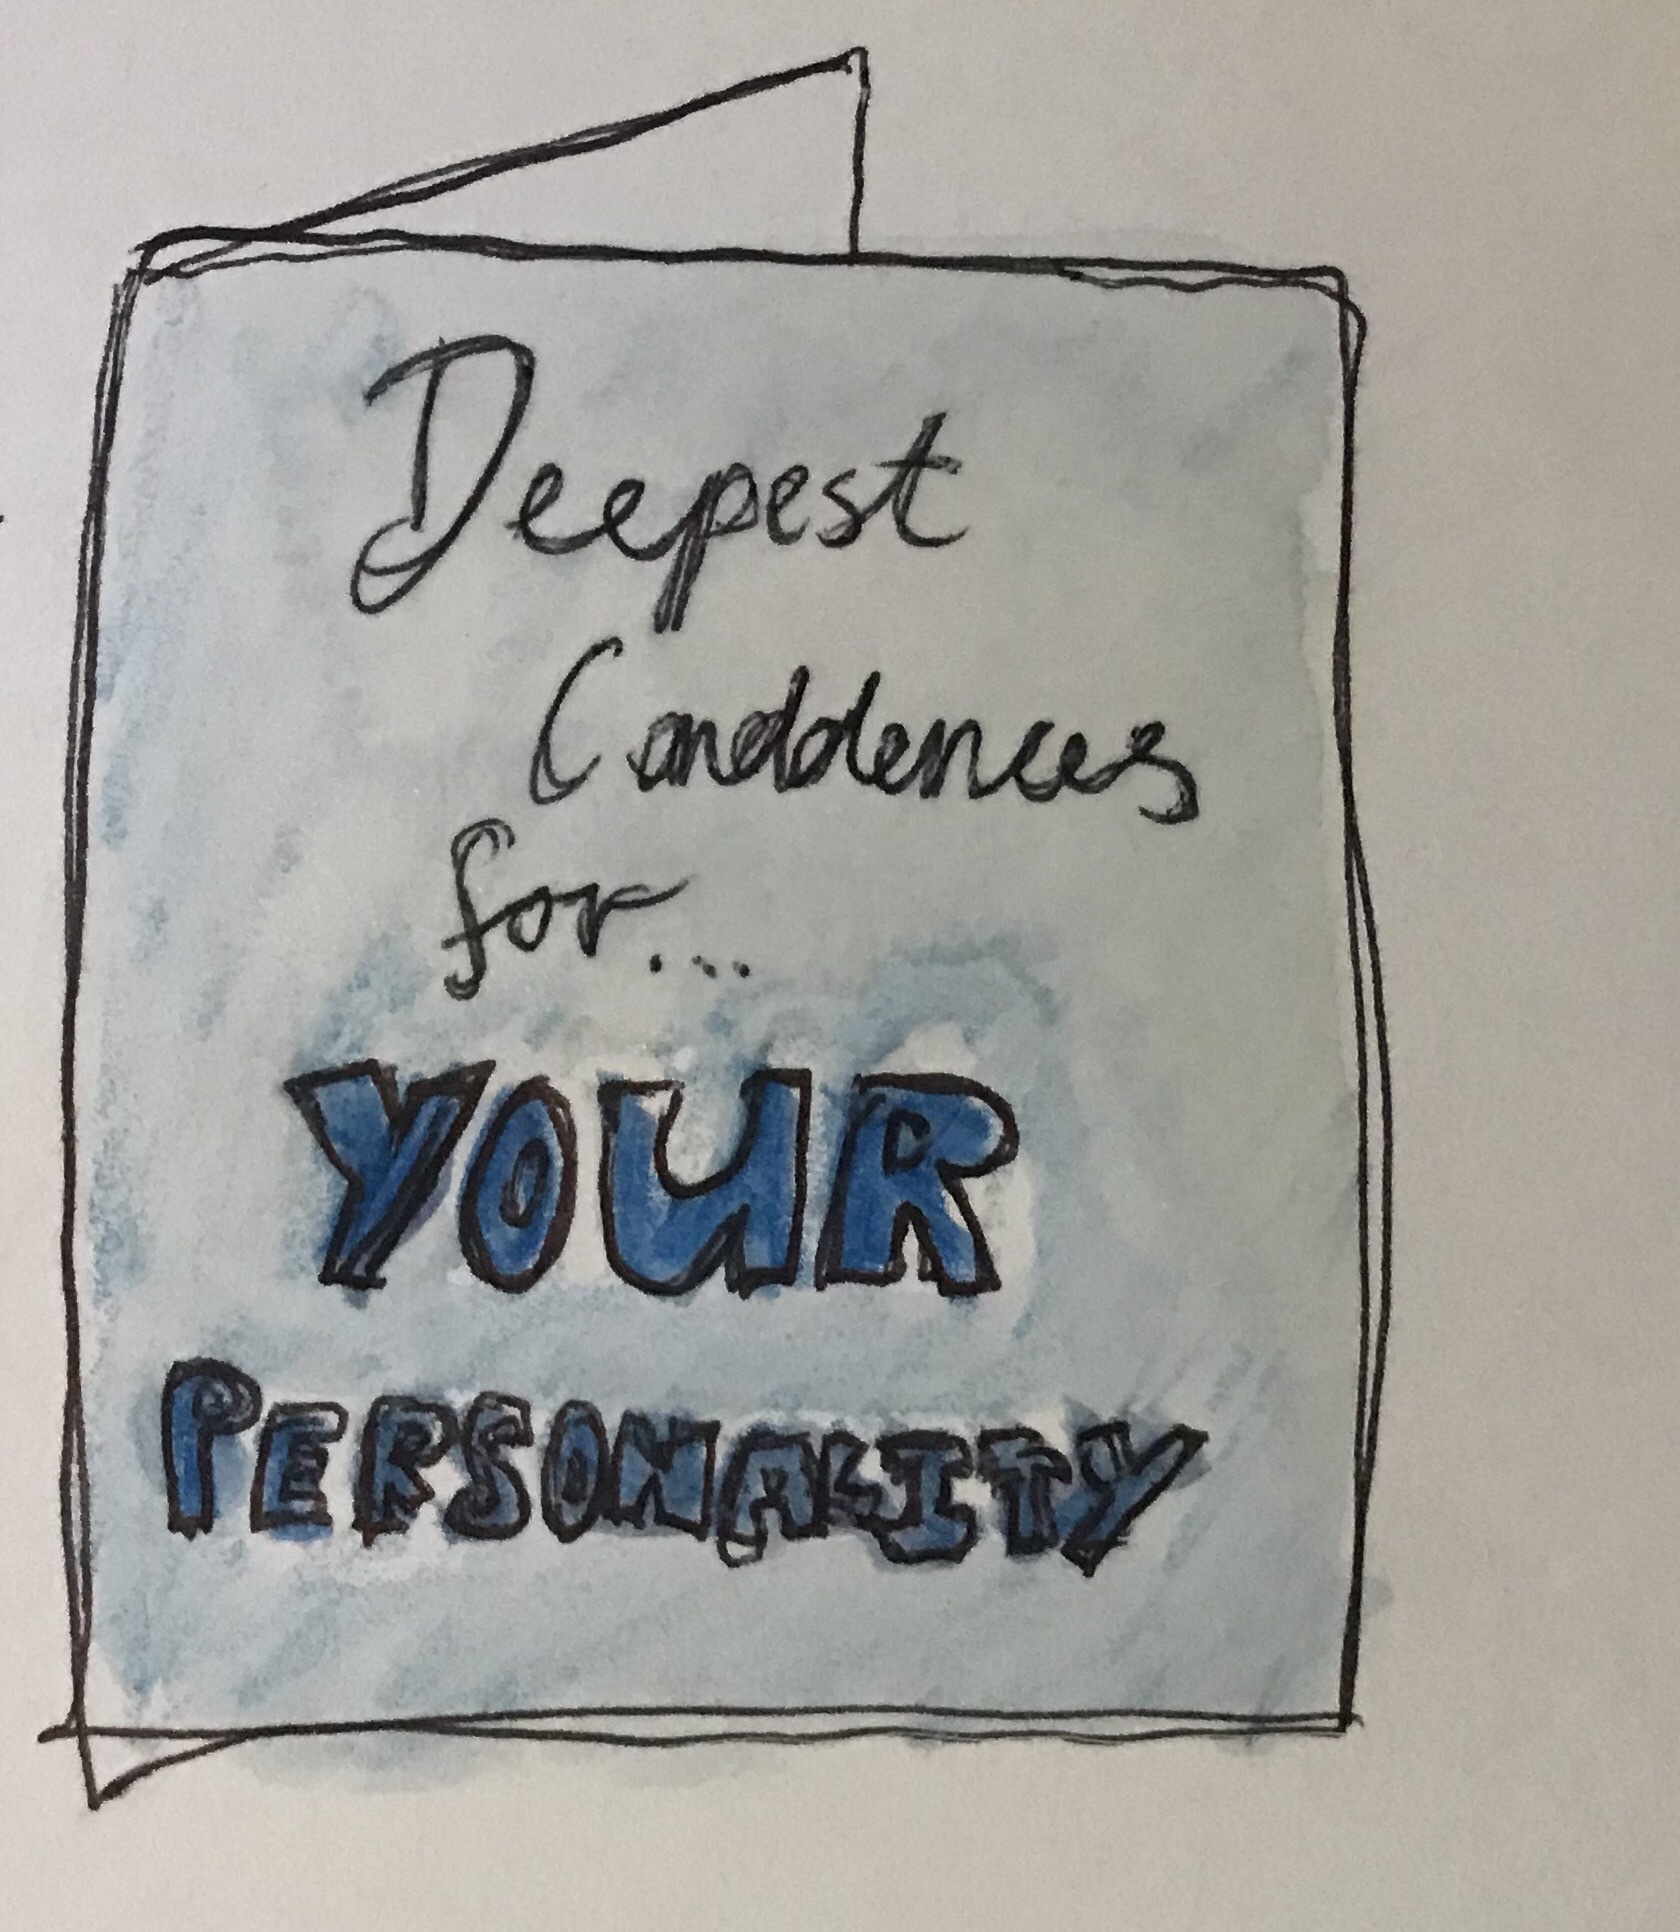 Deepest
Conddences
for...
YOUR
PERSONALITY